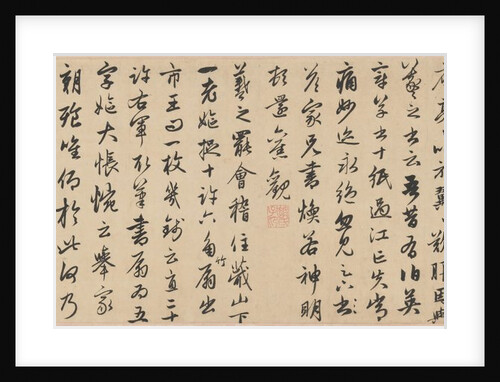 以示翼歎服因與
羲之書云吾昔有伯英
章草書十紙過江亡失常
痛妙迹永絕忽見足下書
答家兄書煥若神明
頓還舊觀
羲之罷會稽住蕺山下
一老嫗捉十許六角竹扇出
市王問一枚幾錢云直二十
許右軍取筆書扇為五
字嫗大悵惋云舉家
朝飧唯仰於此何乃